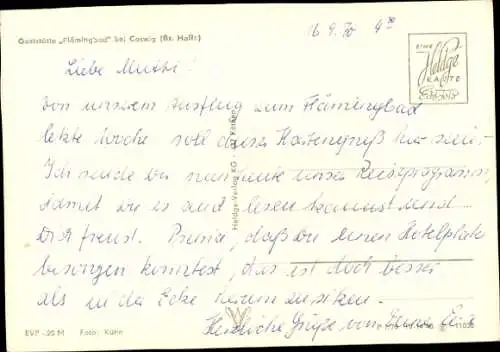 Gaststätte „Flämingbad" bei Coswig (Bz. Halle)
16.9.70
EINE
Heldge
KARTE
Echt Foto
Liebe Mutti!
Von unserem Ausflug zum Flämingbad
letzte Woche soll dieser Kartengruß hier sein.
Ich sende Dir nun heute unser Reiseprogramm,
damit Du es auch lesen kannst und ...
Dich freust. Prima, daß Du einen Hotelplatz
besorgen konntest, das ist doch besser
als in der Ecke herum zu sitzen.
Herzliche Grüße von Deine
Heldge-Verlag KG
EVP -,20 M Foto: Kühn